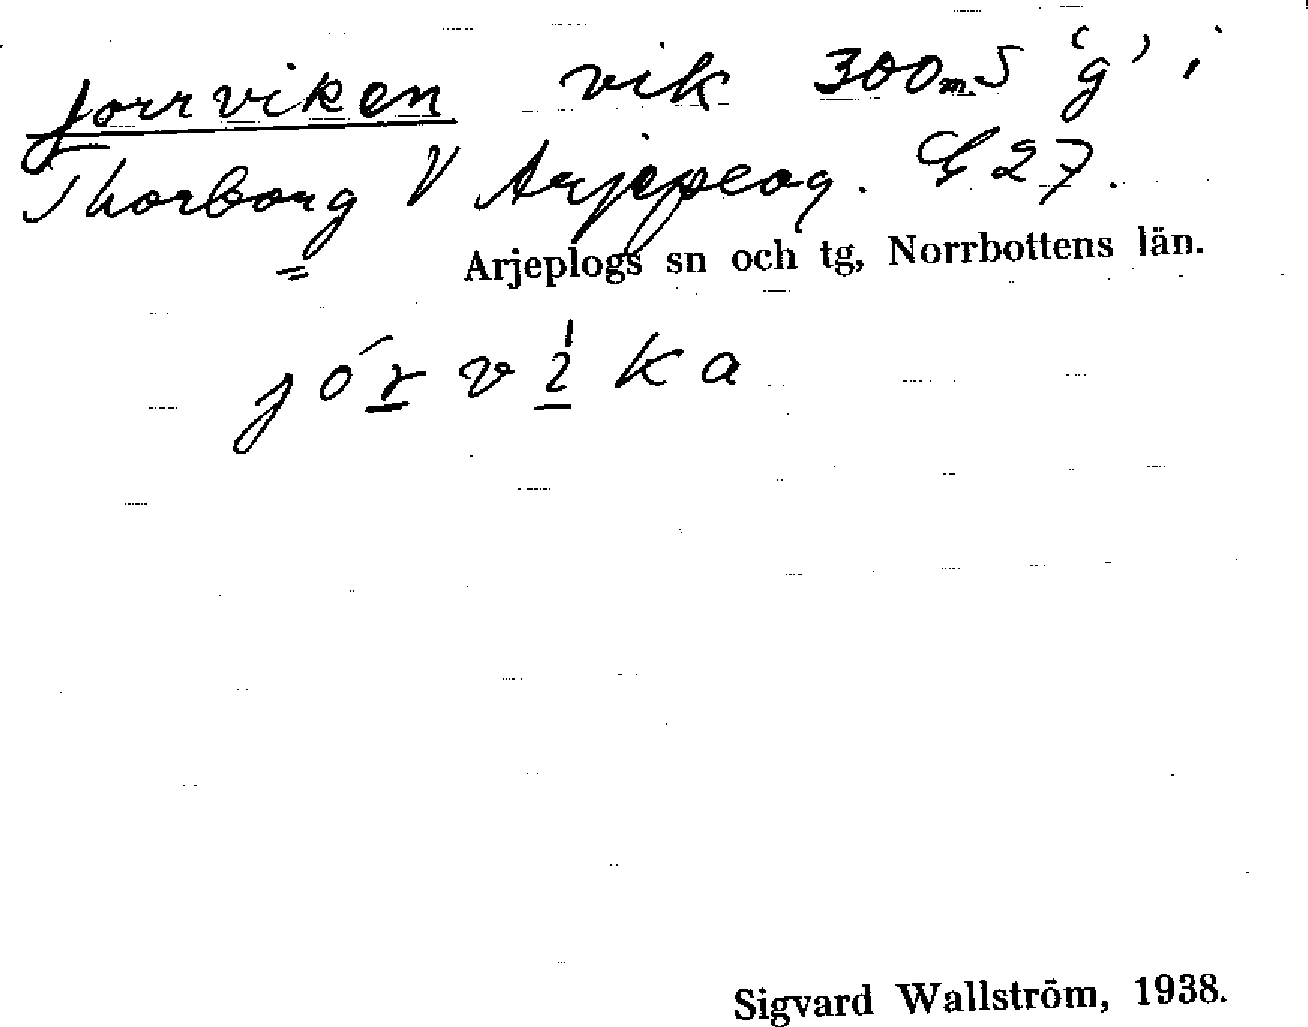 Jorrviken vik 300 m S 'g' i
Thorborg V Arjepeog. G 27.
Arjeplogs sn och tg, Norrbottens län.
Sigvard Wallström, 1938.